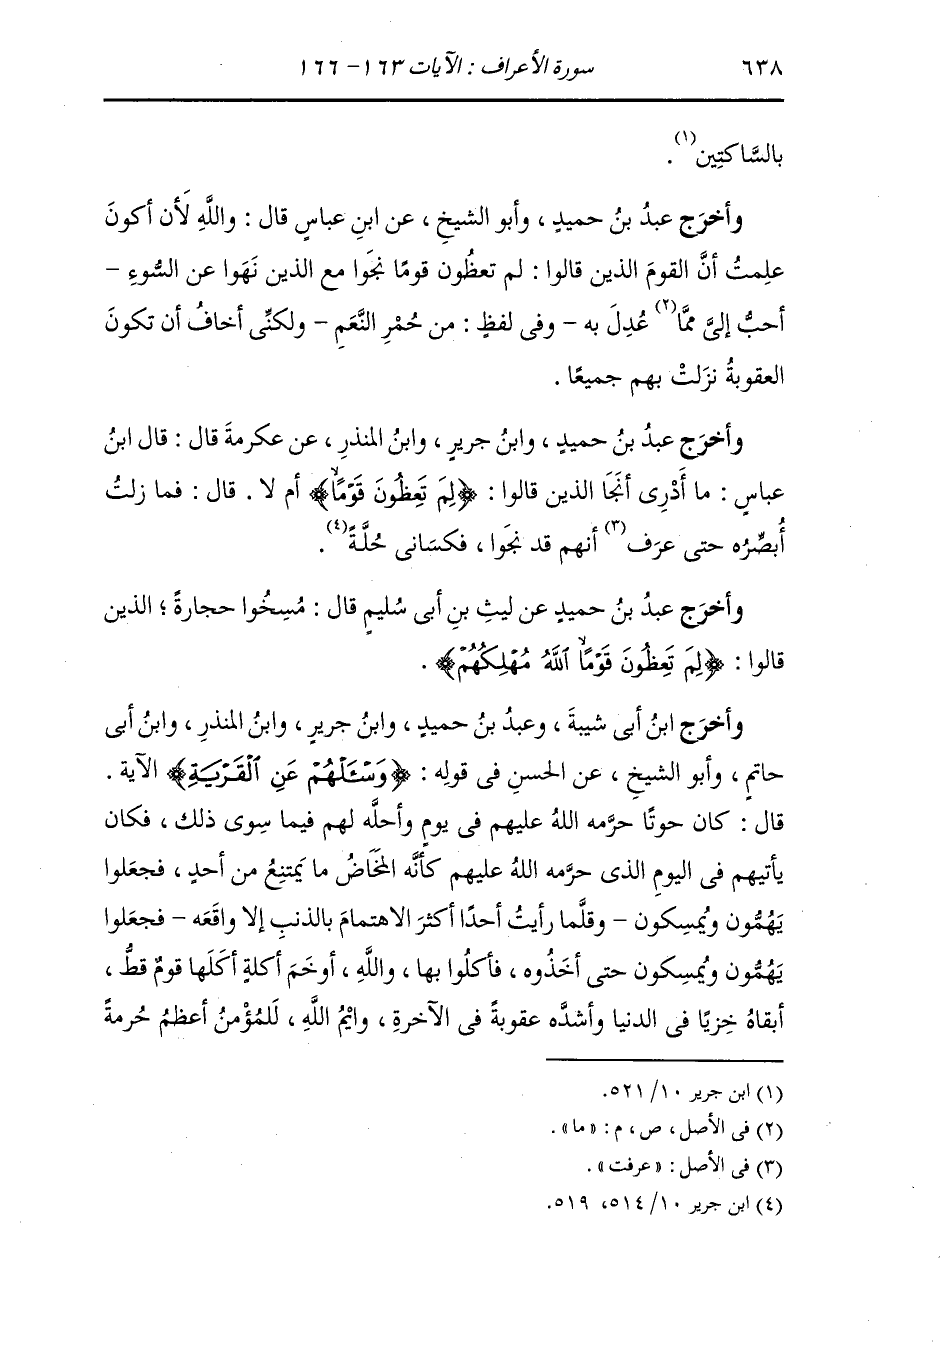 ٦٣٨ سورة الأعراف : الآيات ١٦٣- ١٦٦
بالسَّاكتِين(١) .
وأخرَج عبدُ بنُ حميدٍ ، وأبو الشيخِ ، عن ابنِ عباسٍ قال : واللَّهِ لَأن أكونَ
علِمتُ أنَّ القومَ الذين قالوا : لم تعظُون قومًا نجَوا مع الذين نَهَوا عن السُّوءِ -
أحبُّ إليَّ ممَّا(٢) عُدِلَ به - وفى لفظٍ : من حُمْرِ النَّعَمِ - ولكنِّى أخافُ أن تكونَ
العقوبةُ نزَلتْ بهم جميعًا .
وأخرَج عبدُ بنُ حميدٍ ، وابنُ جريرٍ ، وابنُ المنذرِ ، عن عكرمةَ قال : قال ابنُ
عباسٍ : ما أَدْرِى أنَجَا الذين قالوا : ﴿لِمَ تَعِظُونَ قَوْمًاۙ﴾ أم لا . قال : فما زلتُ
أُبصِّرُه حتى عرَف(٣) أنهم قد نجَوا ، فكسَانى حُلَّةً(٤) .
وأخرَج عبدُ بنُ حميدٍ عن ليثِ بنِ أبى سُليمٍ قال : مُسِخُوا حجارةً ؛ الذين
قالوا : ﴿لِمَ تَعِظُونَ قَوْمًاۙ ٱللَّهُ مُهْلِكُهُمْ﴾ .
وأخرَج ابنُ أبى شيبةَ ، وعبدُ بنُ حميدٍ ، وابنُ جريرٍ ، وابنُ المنذرِ ، وابنُ أبى
حاتمٍ ، وأبو الشيخِ ، عن الحسنِ فى قولِه : ﴿وَسْـَٔلْهُمْ عَنِ ٱلْقَرْيَةِ﴾ الآية .
قال : كان حوتًا حرَّمه اللهُ عليهم فى يومٍ وأحلَّه لهم فيما سِوى ذلك ، فكان
يأتيهم فى اليومِ الذى حرَّمه اللهُ عليهم كأنَّه المَخَاضُ ما يَمتنِعُ من أحدٍ ، فجعَلوا
يَهُمُّون ويُمسِكون - وقلَّما رأيتُ أحدًا أكثرَ الاهتمامَ بالذنبِ إلا واقَعَه - فجعَلوا
يَهُمُّون ويُمسِكون حتى أخَذُوه ، فأكلُوا بها ، واللَّهِ ، أوخَمَ أكلةٍ أكَلَها قومٌ قطُّ ،
أبقاهُ خِزيًا فى الدنيا وأشدَّه عقوبةً فى الآخرةِ ، وايْمُ اللَّهِ ، لَلمُؤْمنُ أعظمُ حُرمةً
(١) ابن جرير ١٠/ ٥٢١.
(٢) فى الأصل ، ص ، م : «ما» .
(٣) فى الأصل : «عرفت» .
(٤) ابن جرير ١٠/ ٥١٤، ٥١٩.